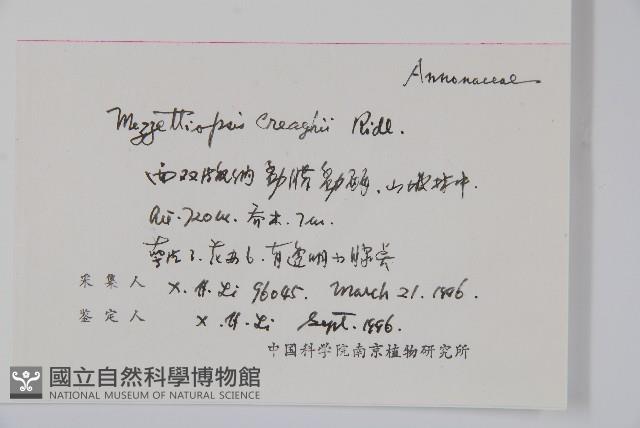 Annonaceae
Mezzettiopsis Creaghii Ridl.
西双版纳 勐腊勐 山坡林中.
alt. 720m. 乔木. 7m.
萼片3. 花瓣6. 有透明
采集人 X. H. Li 96045. March 21. 1996.
鉴定人 X. H. Li Sept. 1996.
中国科学院南京植物研究所
國立自然科學博物館
NATIONAL MUSEUM OF NATURAL SCIENCE